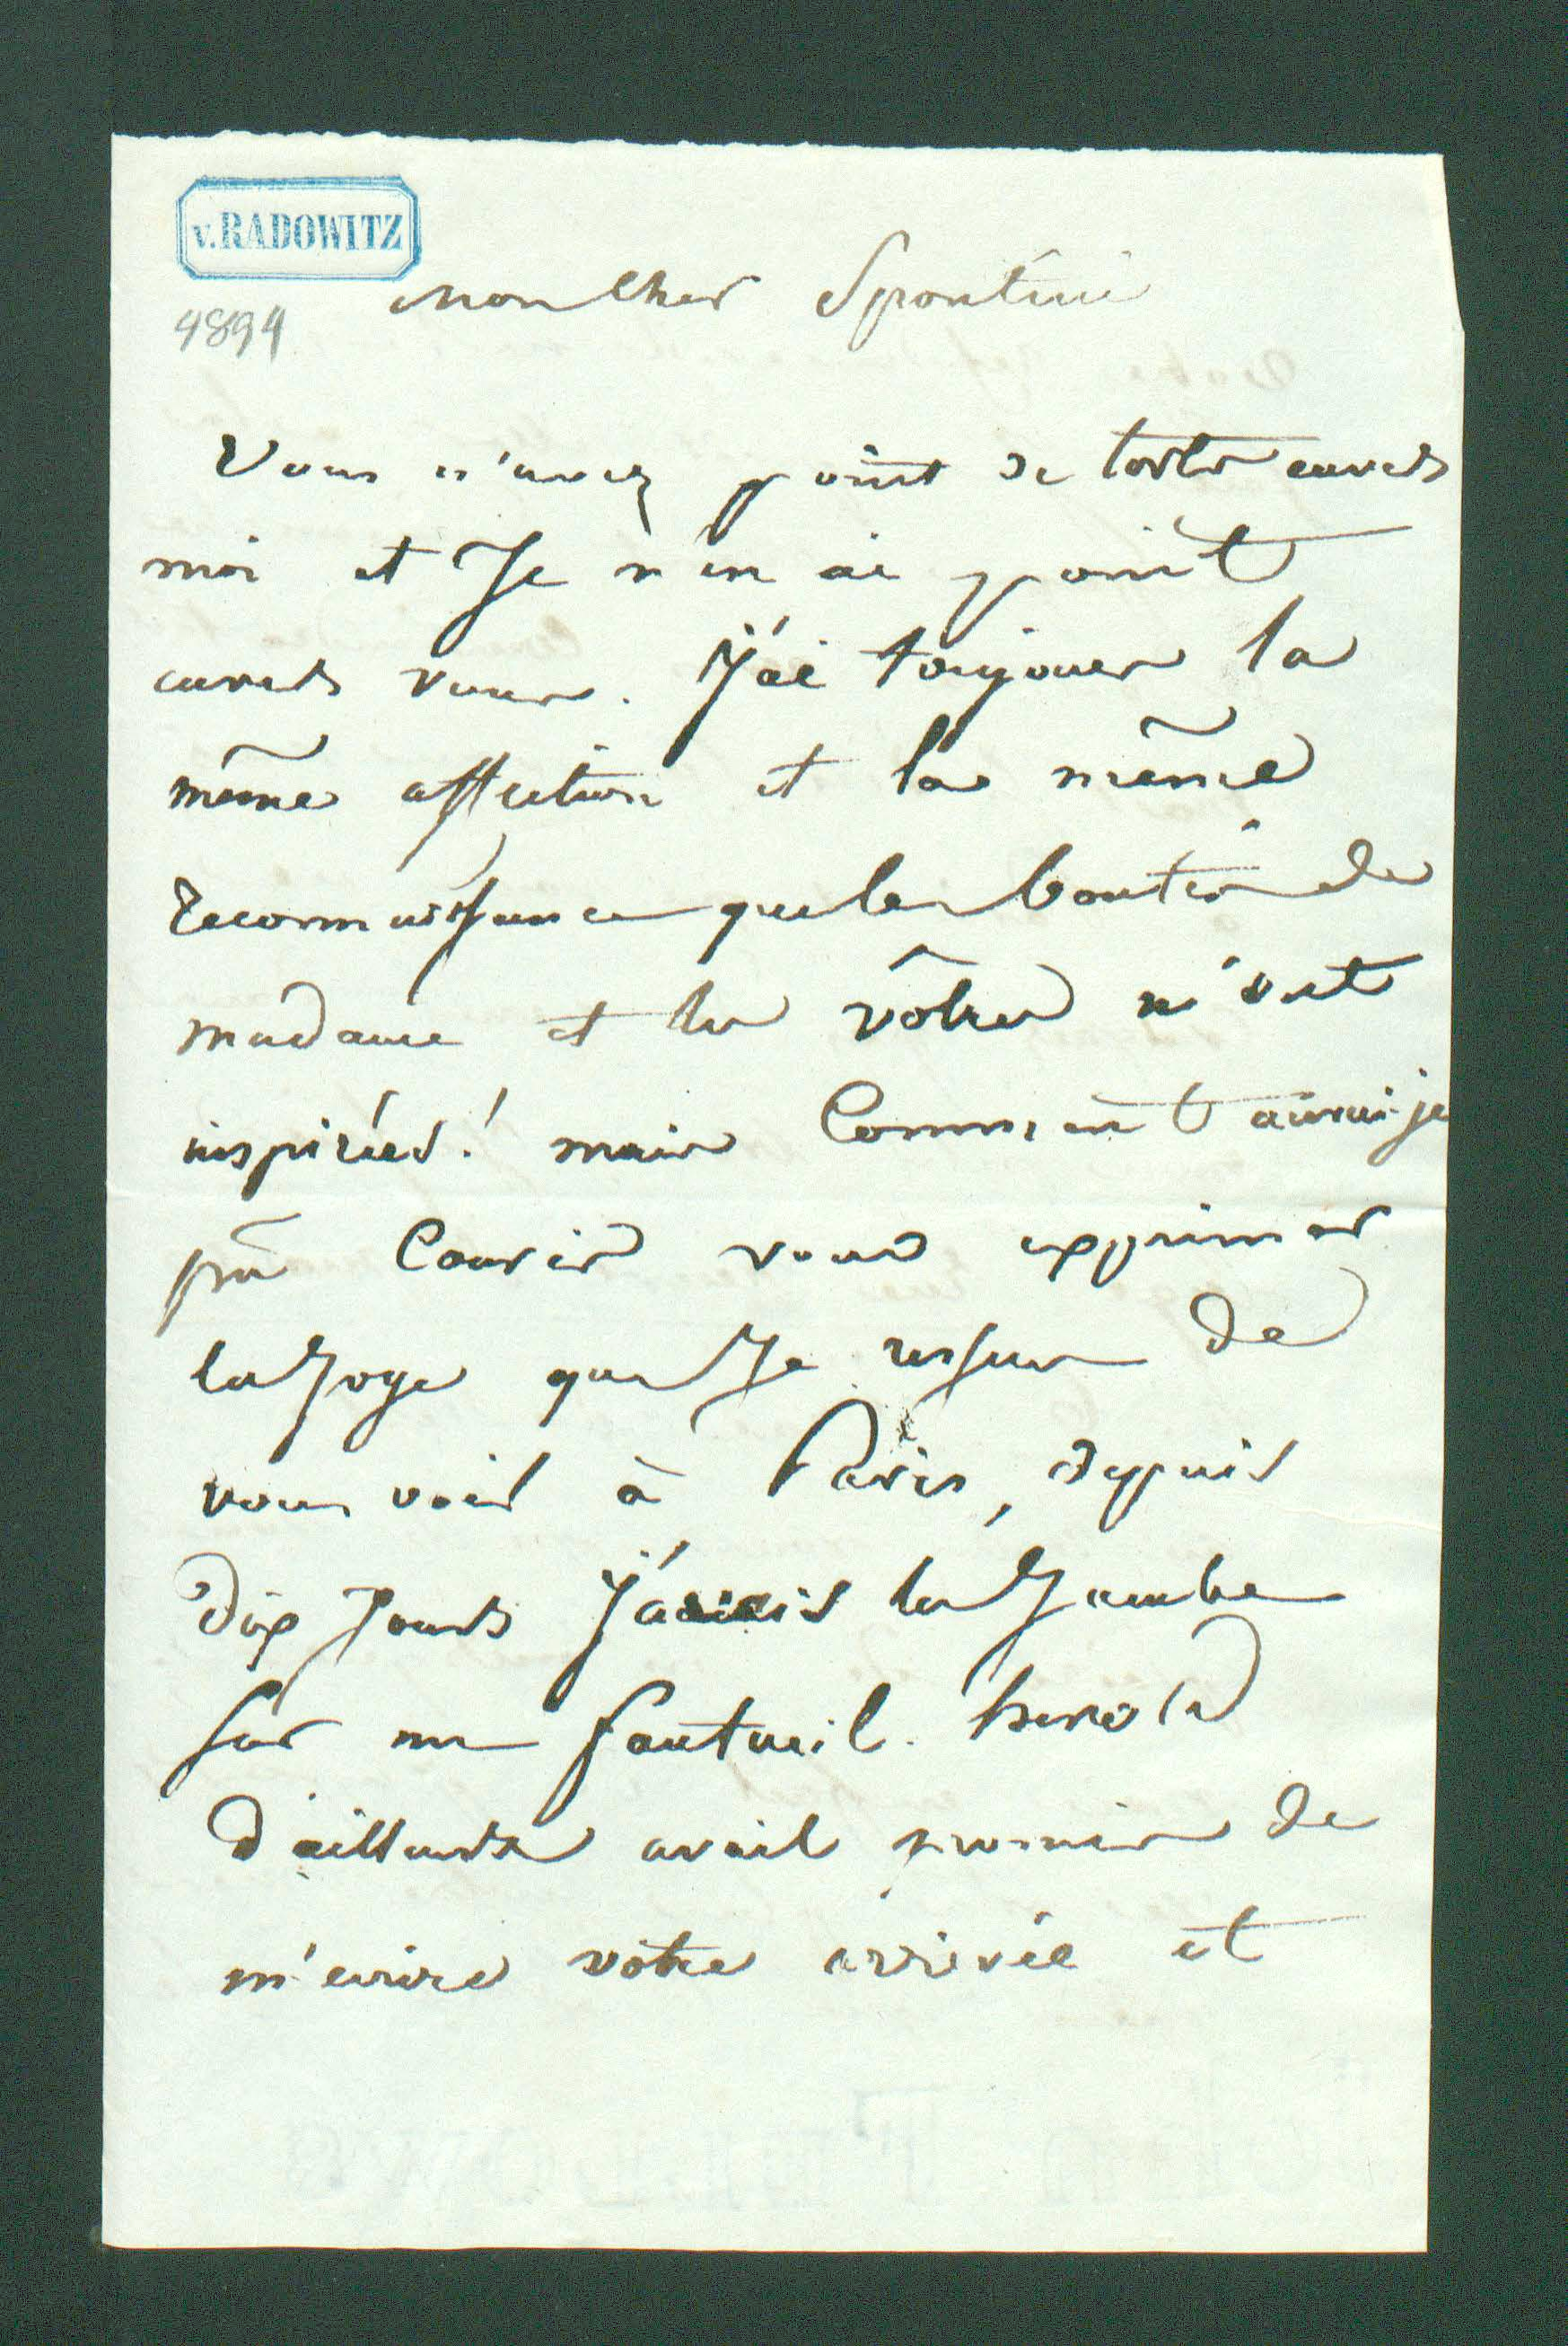 v. RADOWITZ
4894
Mon cher Spontini
Vous n'avez point de torts envers
moi et Je n'en ai point
envers vous. J'ai toujours la
même affection et la même
reconnaissance que les bontés de
madame et les vôtres m'ont
inspirées! mais Comment aurai-je
pû Courir vous exprimer
la Joye que Je ressens de
vous voir à Paris, depuis
dix Jours J'avais la Jambe
sur un fauteuil. herold
d'ailleurs avait promis de
m'ecrire votre arrivée et
JOHN FELLOWS